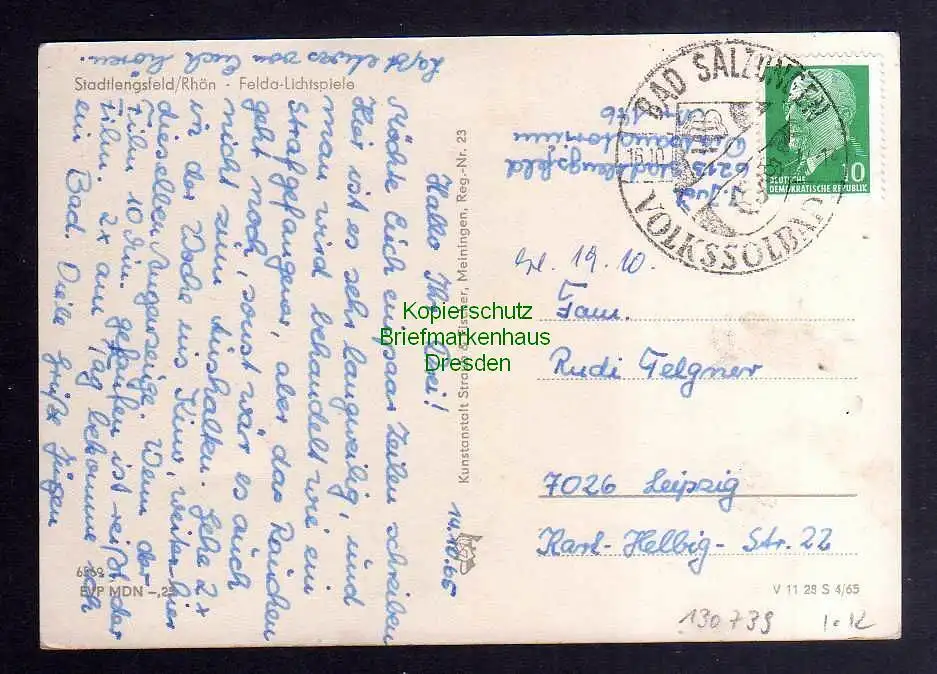 Laßt etwas von Euch hören.
Stadtlengsfeld/Rhön · Felda-Lichtspiele
14.10.65
Hallo Ihr Drei!
Möchte Euch ein paar Zeilen schreiben
Hier ist es sehr langweilig, und
man wird behandelt wie ein
Strafgefangener, aber das Rauchen
geht noch, sonst wär es auch
nicht zum Aushalten. Gehe 2x
in der Woche ins Kino, weiter hier
dieselben
Film
Film. 2x am Tag bekomme ich
ein Bad. Viele Grüße Jürgen
6569
EVP MDN –,25
Kunstanstalt Straub & Fischer, Meiningen, Reg.-Nr. 23
6215 Stadtlengsfeld
BAD SALZUNGEN
16.10.
VOLKSSOLBAD
DEUTSCHE
DEMOKRATISCHE REPUBLIK
10
19.10.
Fam.
Rudi Felgner
7026 Leipzig
Karl-Helbig-Str. 22
V 11 28 S 4/65
130739
Kopierschutz
Briefmarkenhaus
Dresden